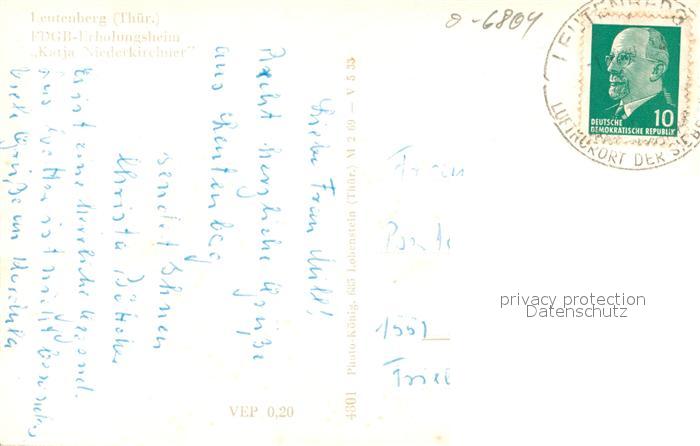 Leutenberg (Thür.)
FDGB-Erholungsheim
„Katja Niederkirchner"
o-6804
LEUTENBERG
LUFTKURORT DER SIEB
10
DEUTSCHE
DEMOKRATISCHE REPUBLIK
Liebe Frau Mill!
Recht herzliche Grüße
aus Leutenberg
sendet Ihnen
Christa Böttcher
Es ist eine herrliche Gegend.
Das Wetter ist nicht besonders
Viele Grüße an
4801 Photo-König, 685 Lobenstein (Thür.) M 2 69 — V 5 35
Frau
1551
VEP 0,20
privacy protection
Datenschutz